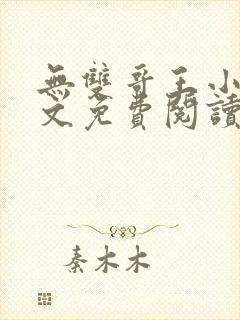 無雙哥王小
文免費閱讀
秦木木